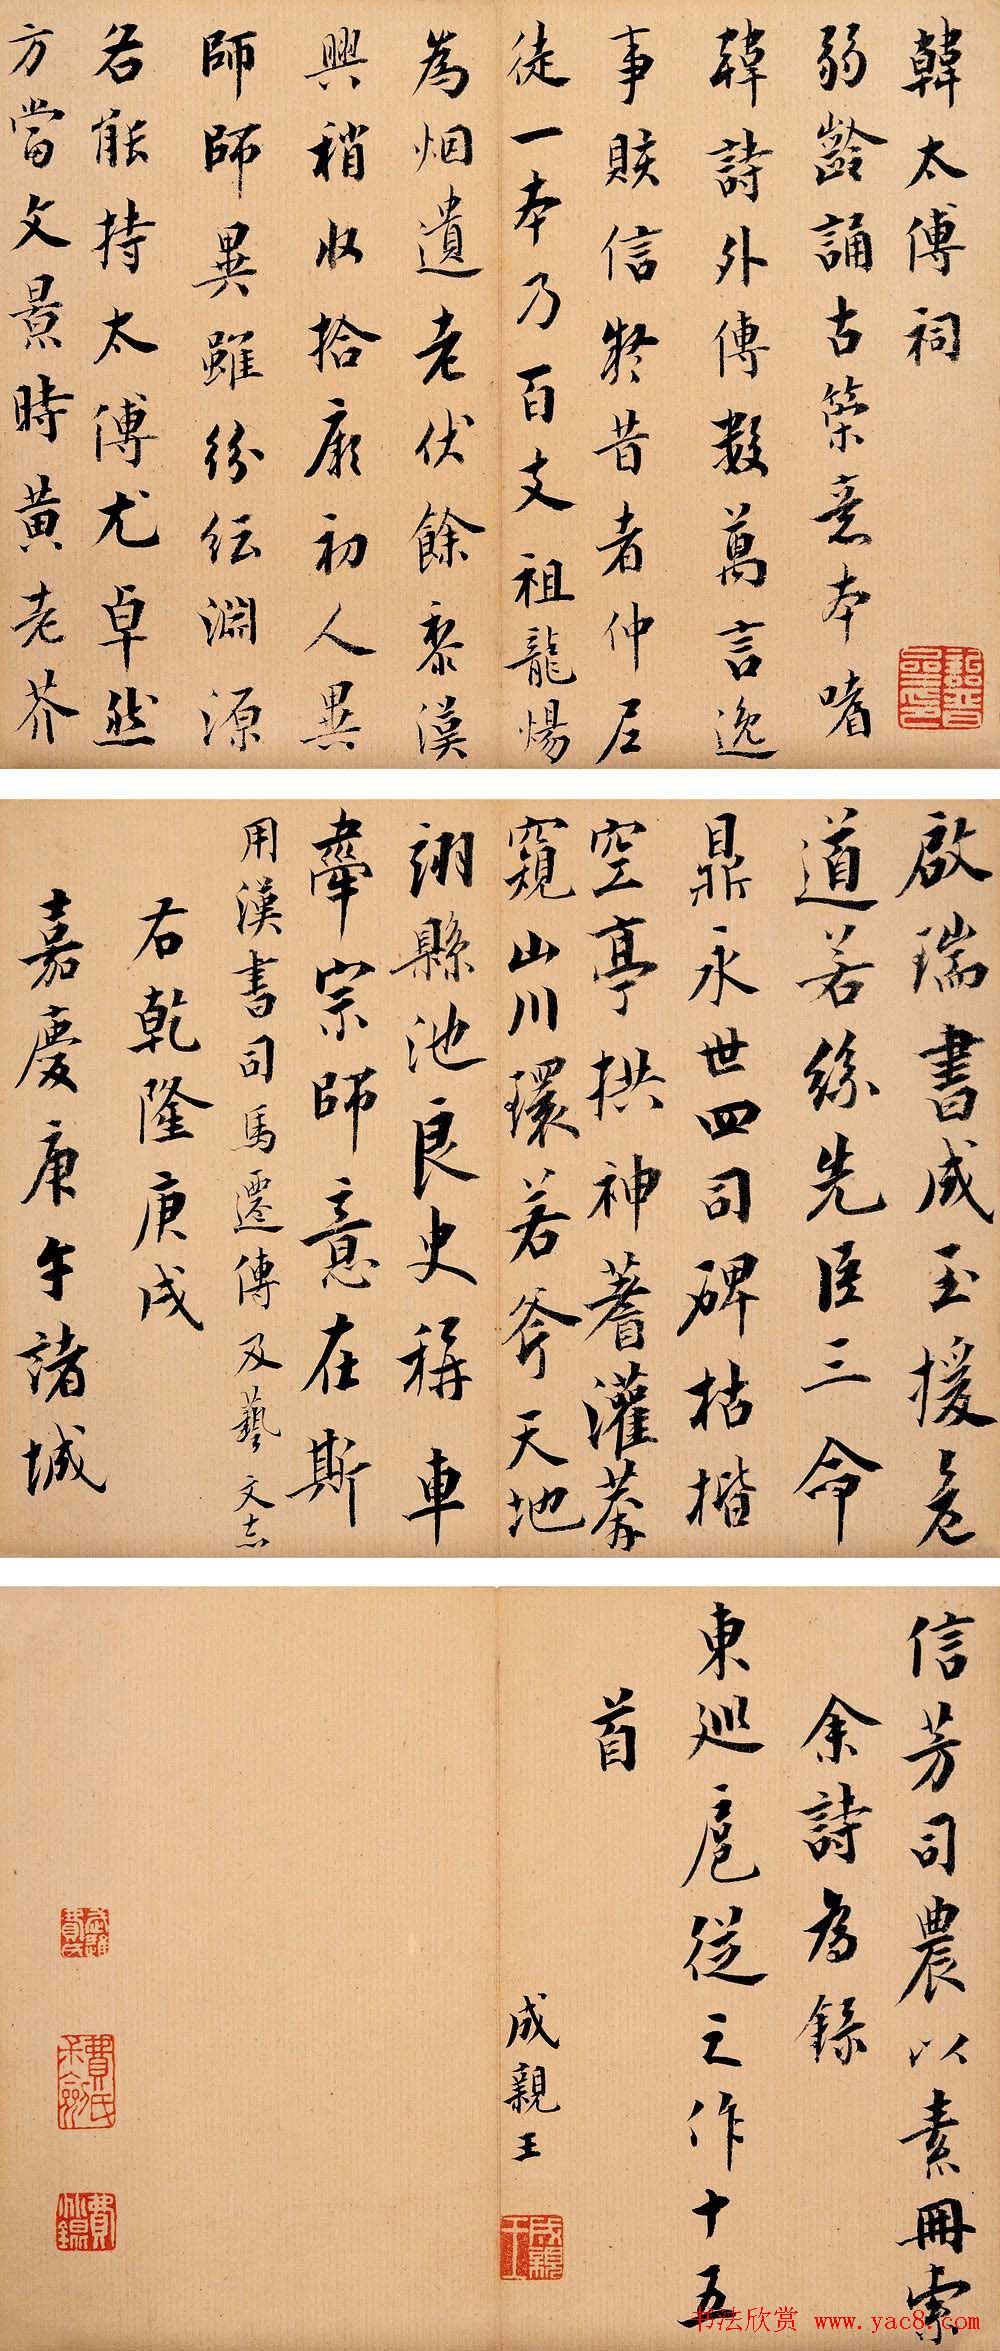 韓太傅祠
弱齡誦古策意本嗜
韓詩外傳數萬言逸
事賅信好昔者仲尼
徒一本乃百支祖龍煬
為烟遺老伏餘黎漢
興稍收拾厥初人異
師師異雖紛紜淵源
名能持太傅尤卓然
方當文景時黃老芥
啟瑞書成玉援危
道若絲先臣三命
鼎永世四司碑枯楷
空亭拱神蓍灌莽
窺山川環若斧天地
詡縣池良史稱車
牽宗師意在斯
用漢書司馬遷傳及藝文志
右乾隆庚戌
嘉慶庚午諸城
信芳司農以素冊索
余詩為錄
東巡扈從之作十五
首
成親王
成親王
書法欣賞 www.yac8.com